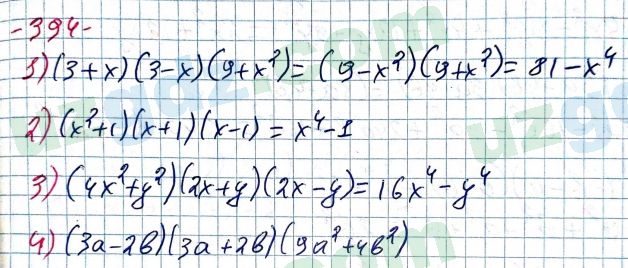 -394-
1) (3+x)(3-x)(9+x²)=(9-x²)(9+x²)=81-x⁴
2) (x²+1)(x+1)(x-1)=x⁴-1
3) (4x²+y²)(2x+y)(2x-y)=16x⁴-y⁴
4) (3a-2b)(3a+2b)(9a²+4b²)